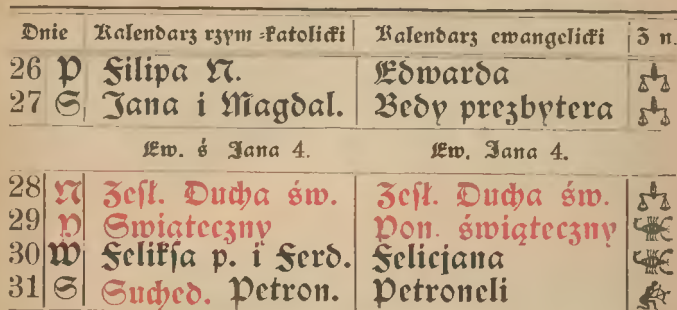 Dnie Kalendarz rzym-katolicki Kalendarz ewangelicki Z n.
26 P Filipa N. Edwarda
27 S Jana i Magdal. Bedy prezbytera
Ew. ś Jana 4. Ew. Jana 4.
28 N Zesł. Ducha św. Zesł. Ducha św.
29 P Swiąteczny Pon. świąteczny
30 W Feliksa p. i Ferd. Felicjana
31 S Suched. Petron. Petroneli